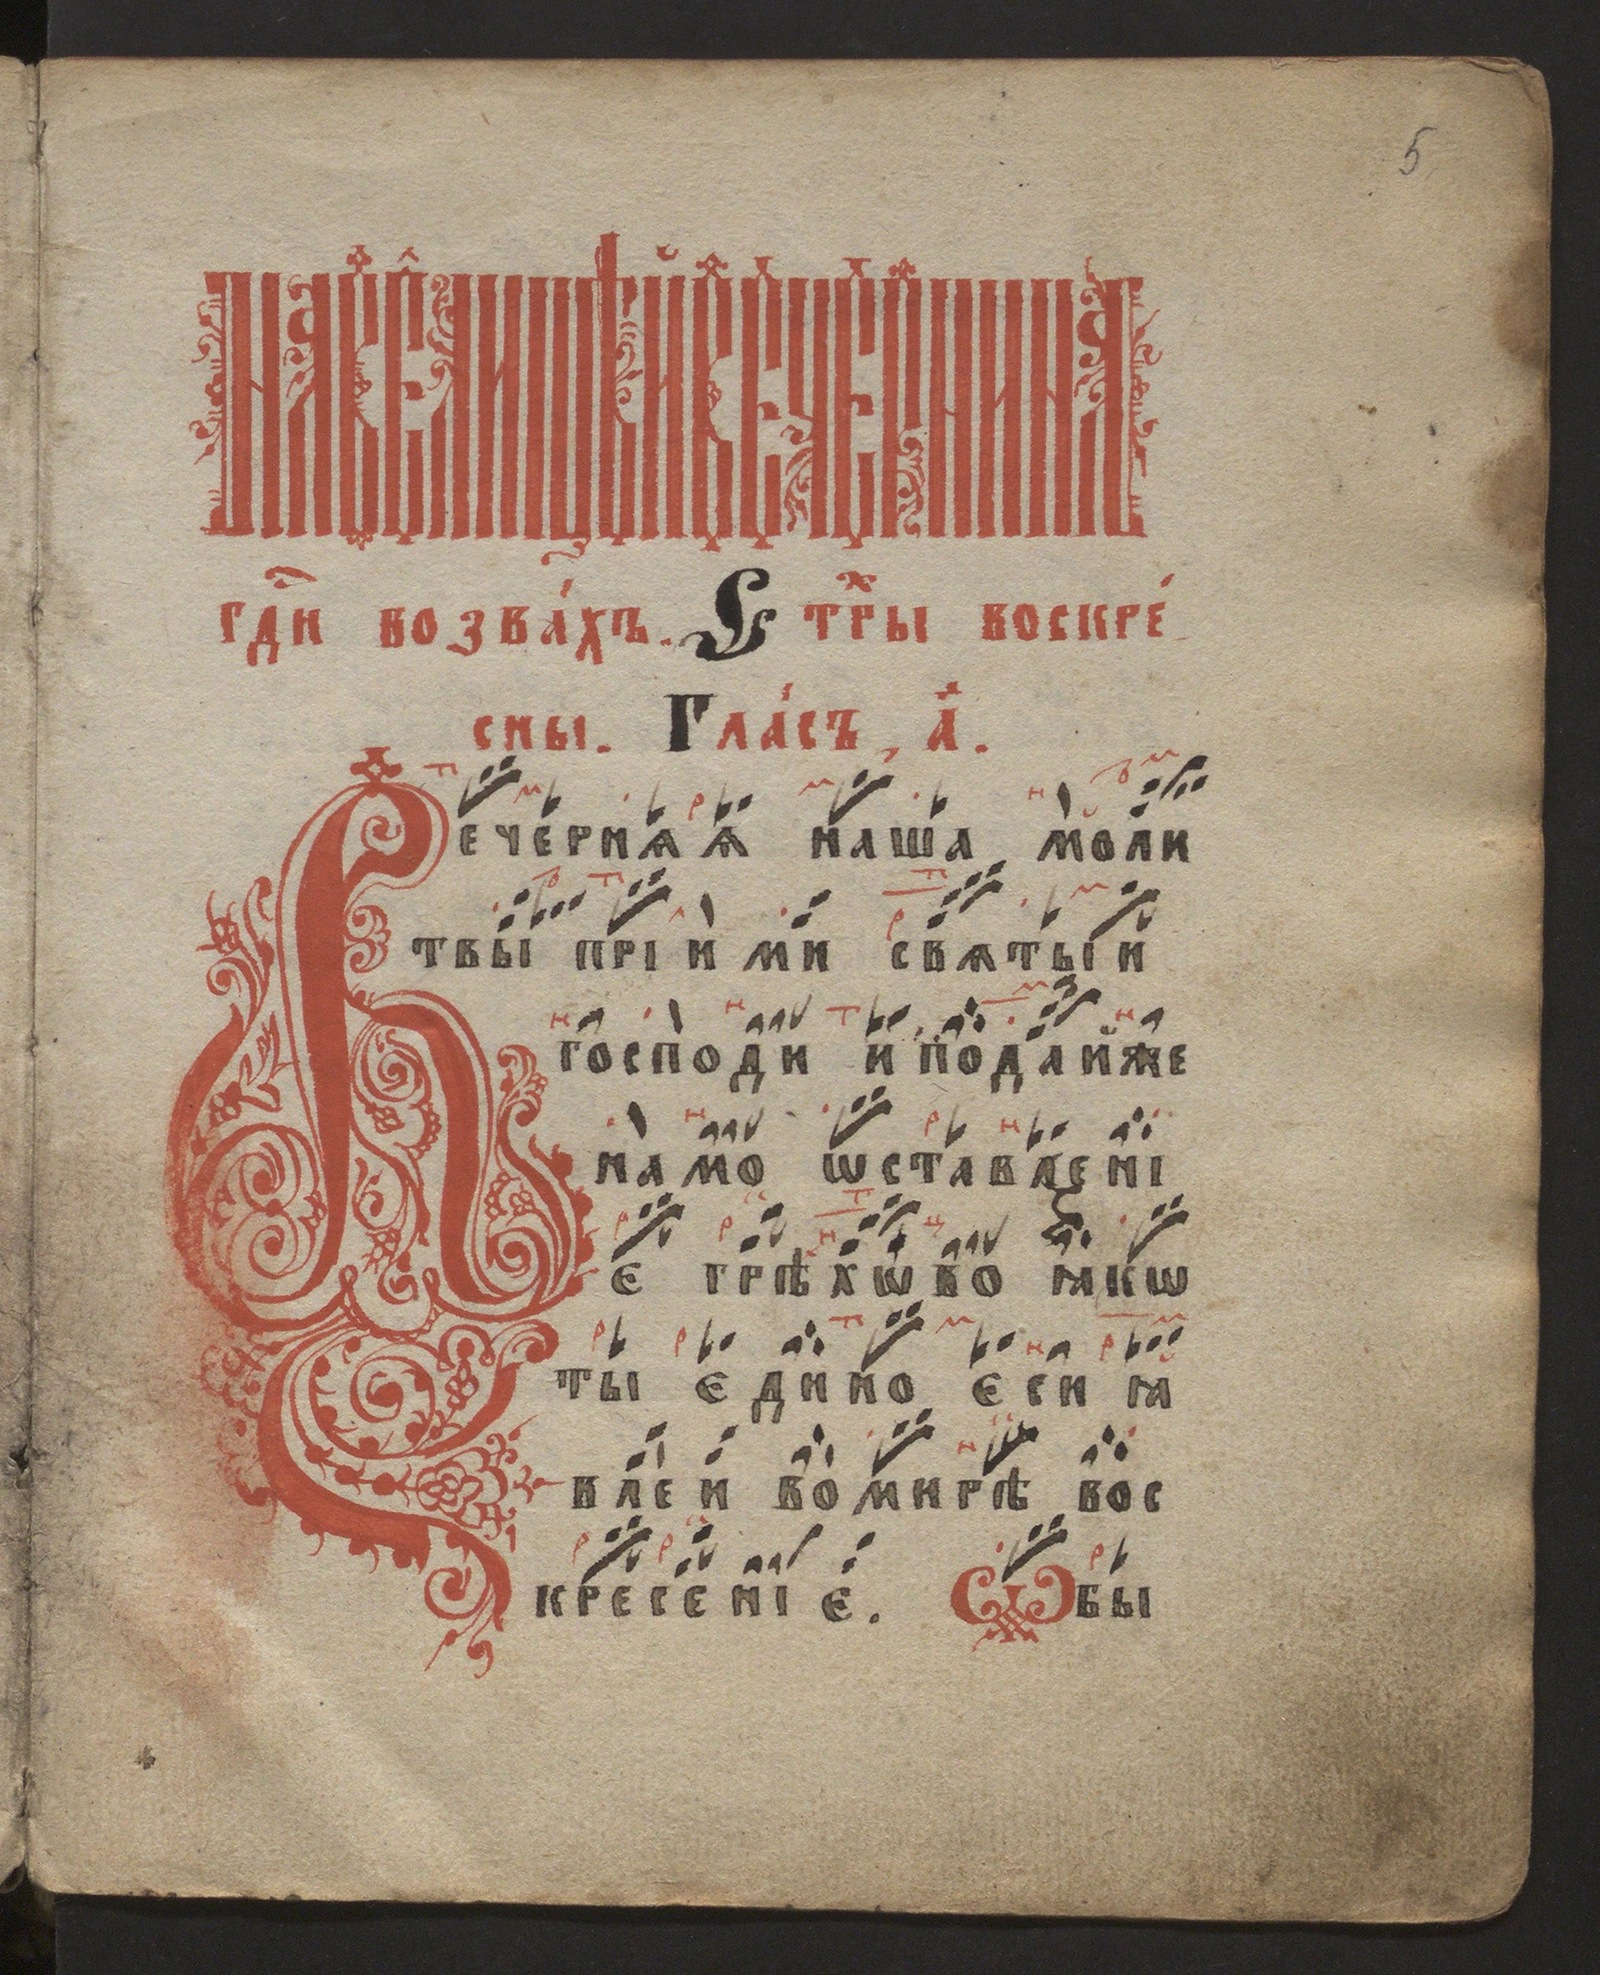 5
НАВЕЛИЦѢЙВЕЧЕРНИНА
гд҇и возва́хъ. Стр҇ы воскре́
сны. Гла́съ, а҃.
Вечернѧѧ наша моли
твы прїими свѧтыи
Господи и подаиже
намо ѡставленї
е грѣхѡво ꙗкѡ
ты едино еси ꙗ
влеи во мирѣ вос
кресенїе. Ѡбы